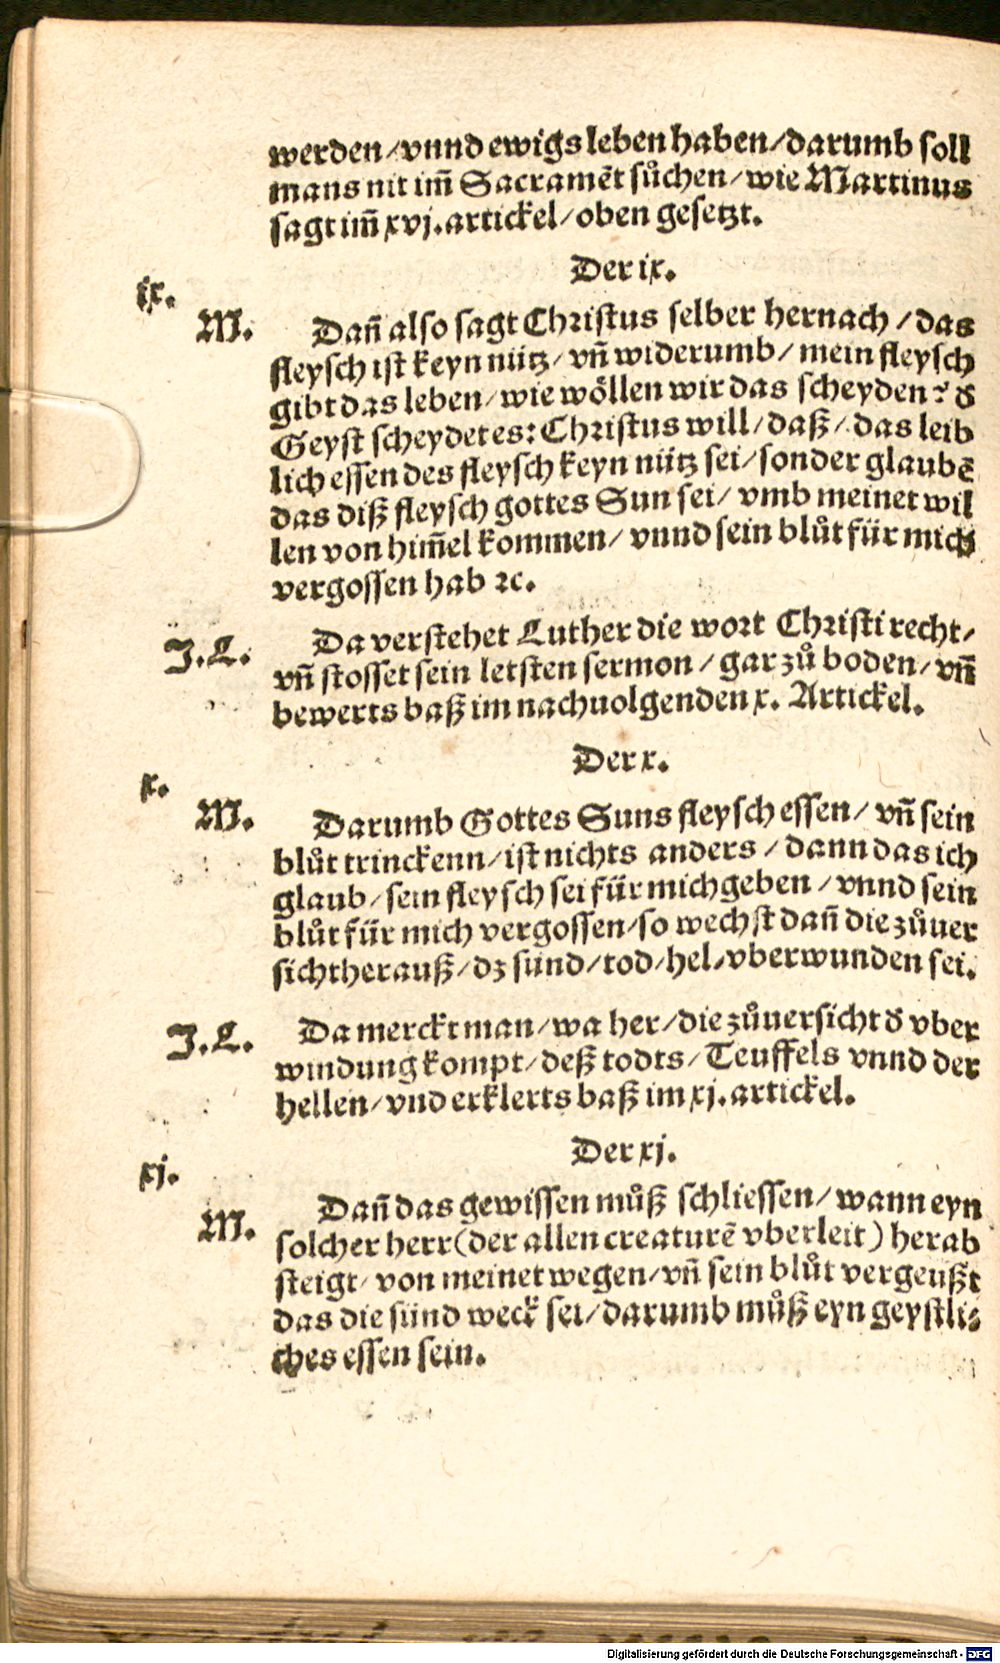 werden/vnnd ewigs leben haben/darumb soll
mans nit im̃ Sacramẽt sůchen/wie Martinus
sagt im̃ xvj. artickel/oben gesetzt.
Der ix.
ix.
M. Dañ also sagt Christus selber hernach/das
fleysch ist keyn nütz/vñ widerumb/mein fleysch
gibt das leben/wie wöllen wir das scheyden? d̕
Geyst scheydet es: Christus will/daß/das leib
lich essen des fleysch keyn nütz sei/sonder glaubẽ
das diß fleysch gottes Sun sei/vmb meinet wil
len von him̃el kommen/vnnd sein blůt für mich
vergossen hab ꝛc.
J.L. Da verstehet Luther die wort Christi recht/
vñ stosset sein letsten sermon/gar zů boden/vñ
bewerts baß im nachuolgenden x. Artickel.
Der x.
x.
M. Darumb Gottes Suns fleysch essen/vñ sein
blůt trinckenn/ist nichts anders/dann das ich
glaub/sein fleysch sei für mich geben/vnnd sein
blůt für mich vergossen/so wechst dañ die zůuer
sicht herauß/dz sünd/tod/hel/vberwunden sei.
J.L. Da merckt man/wa her/die zůuersicht d̕ vber
windung kompt/deß todts/Teuffels vnnd der
hellen/vnd erklerts baß im xj. artickel.
Der xj.
xj.
M. Dañ das gewissen můß schliessen/wann eyn
solcher herr (der allen creaturẽ vberleit) herab
steigt/von meinet wegen/vñ sein blůt vergeußt
das die sünd weck sei/darumb můß eyn geystli⸗
ches essen sein.
Digitalisierung gefördert durch die Deutsche Forschungsgemeinschaft - DFG